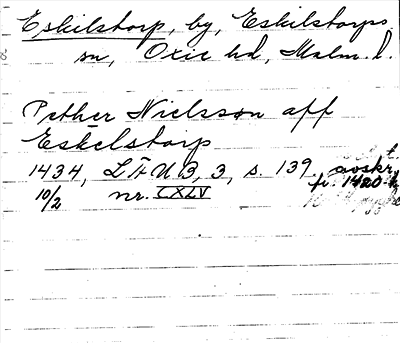 Eskilstorp, by, Eskilstorps
sn, Oxie hd, Malm. l.
Pether Nielsson aff
Eskelstorp
1434, LÄUB, 3, s. 139, avskr.
10/2 nr. CXLV fr. 1420-t